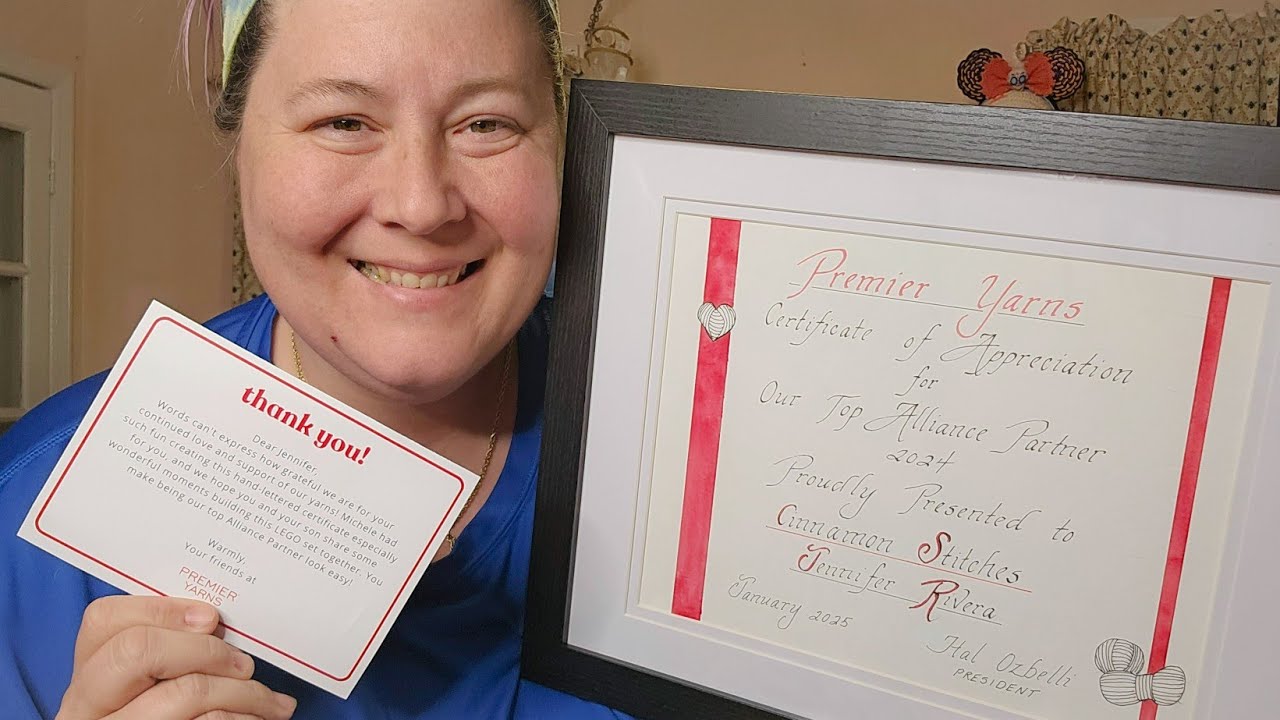 thank you!
Dear Jennifer,
Words can't express how grateful we are for your
continued love and support of our yarns! Michele had
such fun creating this hand-lettered certificate especially
for you, and we hope you and your son share some
wonderful moments building this LEGO set together. You
make being our top Alliance Partner look easy!
Warmly,
Your friends at
PREMIER
YARNS
Premier Yarns
Certificate of Appreciation
for
Our Top Alliance Partner
2024
Proudly Presented to
Cinnamon Stitches
Jennifer Rivera
January 2025
Hal Ozbelli
PRESIDENT